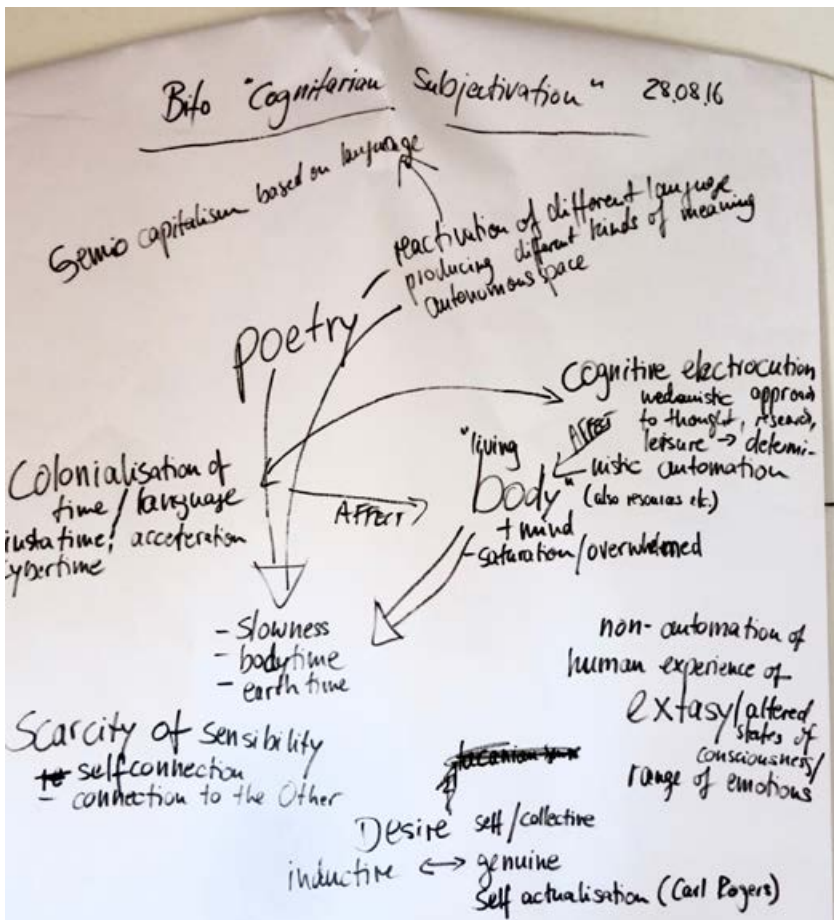 Bifo "Cognitarian Subjectivation" 28.08.16
Semio capitalism based on language
reactivation of different language
producing different kinds of meaning
autonomous space
poetry
Cognitive electrocution
mechanistic approach
to thought, research,
leisure → determi-
nistic automation
(also resources etc.)
AFFECT
"living
body"
+ mind
- saturation/overwhelmed
Colonialisation of
time / language
insta time! acceleration
cybertime
AFFECT
- slowness
- bodytime
- earth time
non-automation of
human experience of
extasy/altered
states of
consciousness/
range of emotions
Scarcity of sensibility
selfconnection
- connection to the Other
Desire self/collective
inductive ↔ genuine
Self actualisation (Carl Rogers)